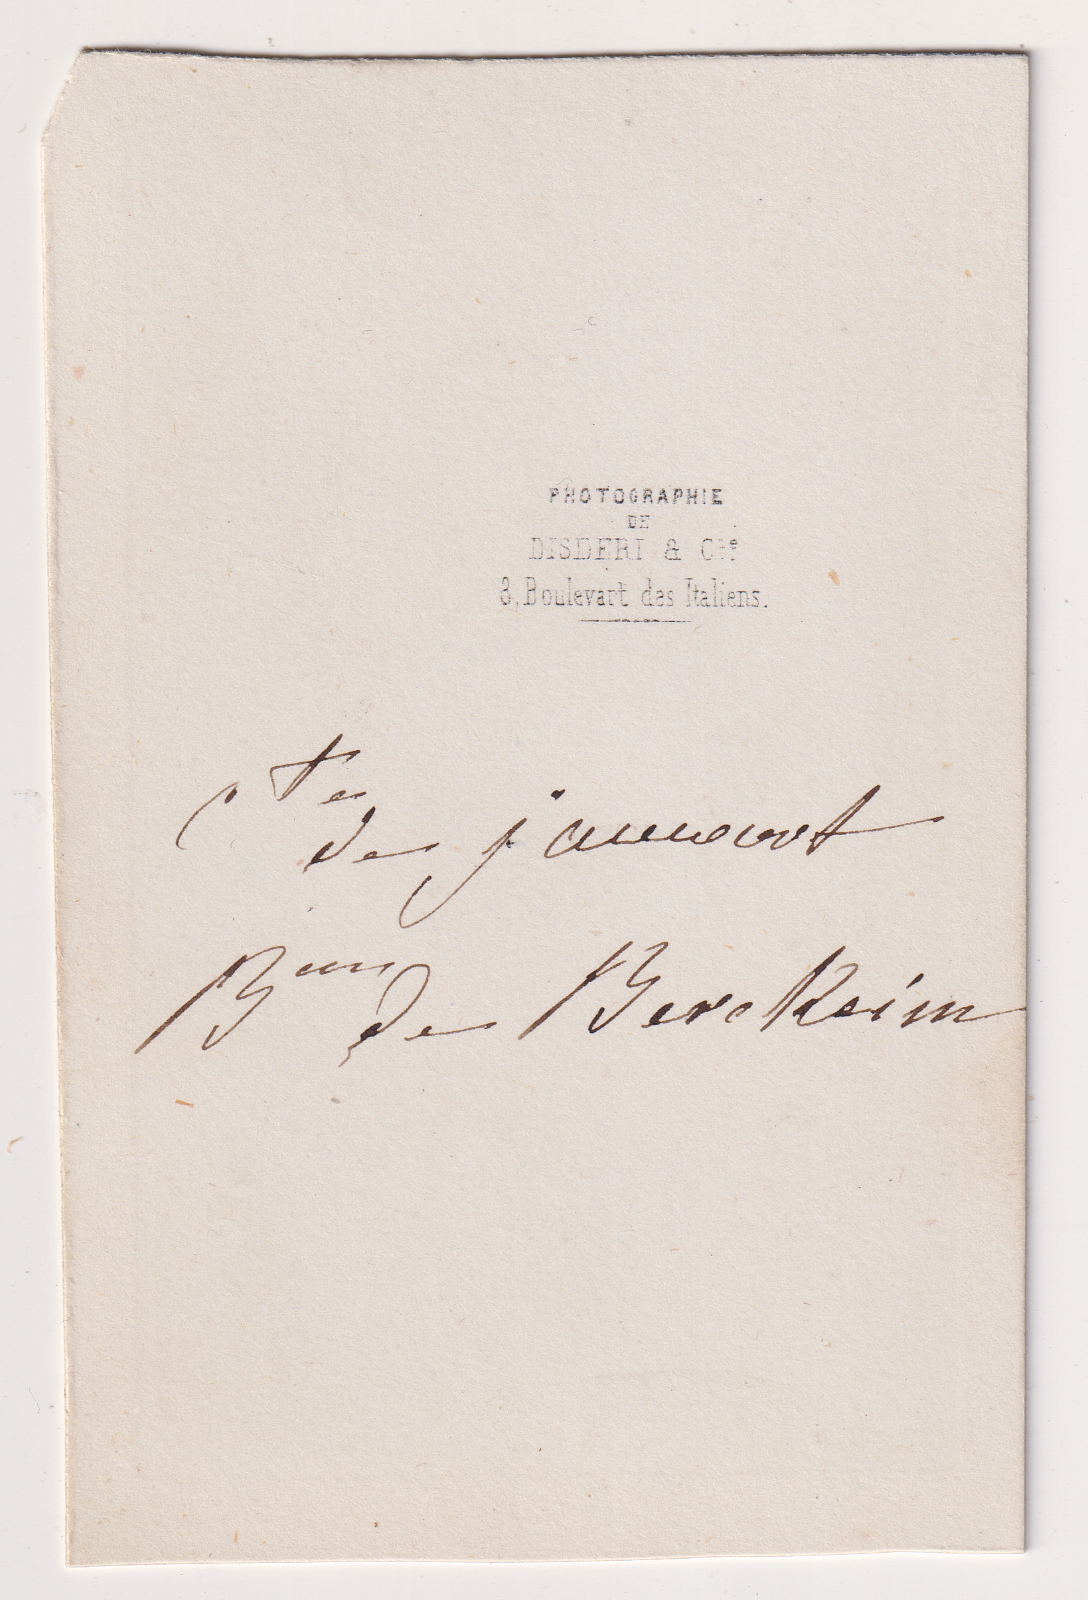 PHOTOGRAPHIE
DE
DISDERI & Cie
8, Boulevart des Italiens.
Cte de
Bonn de Berckeim